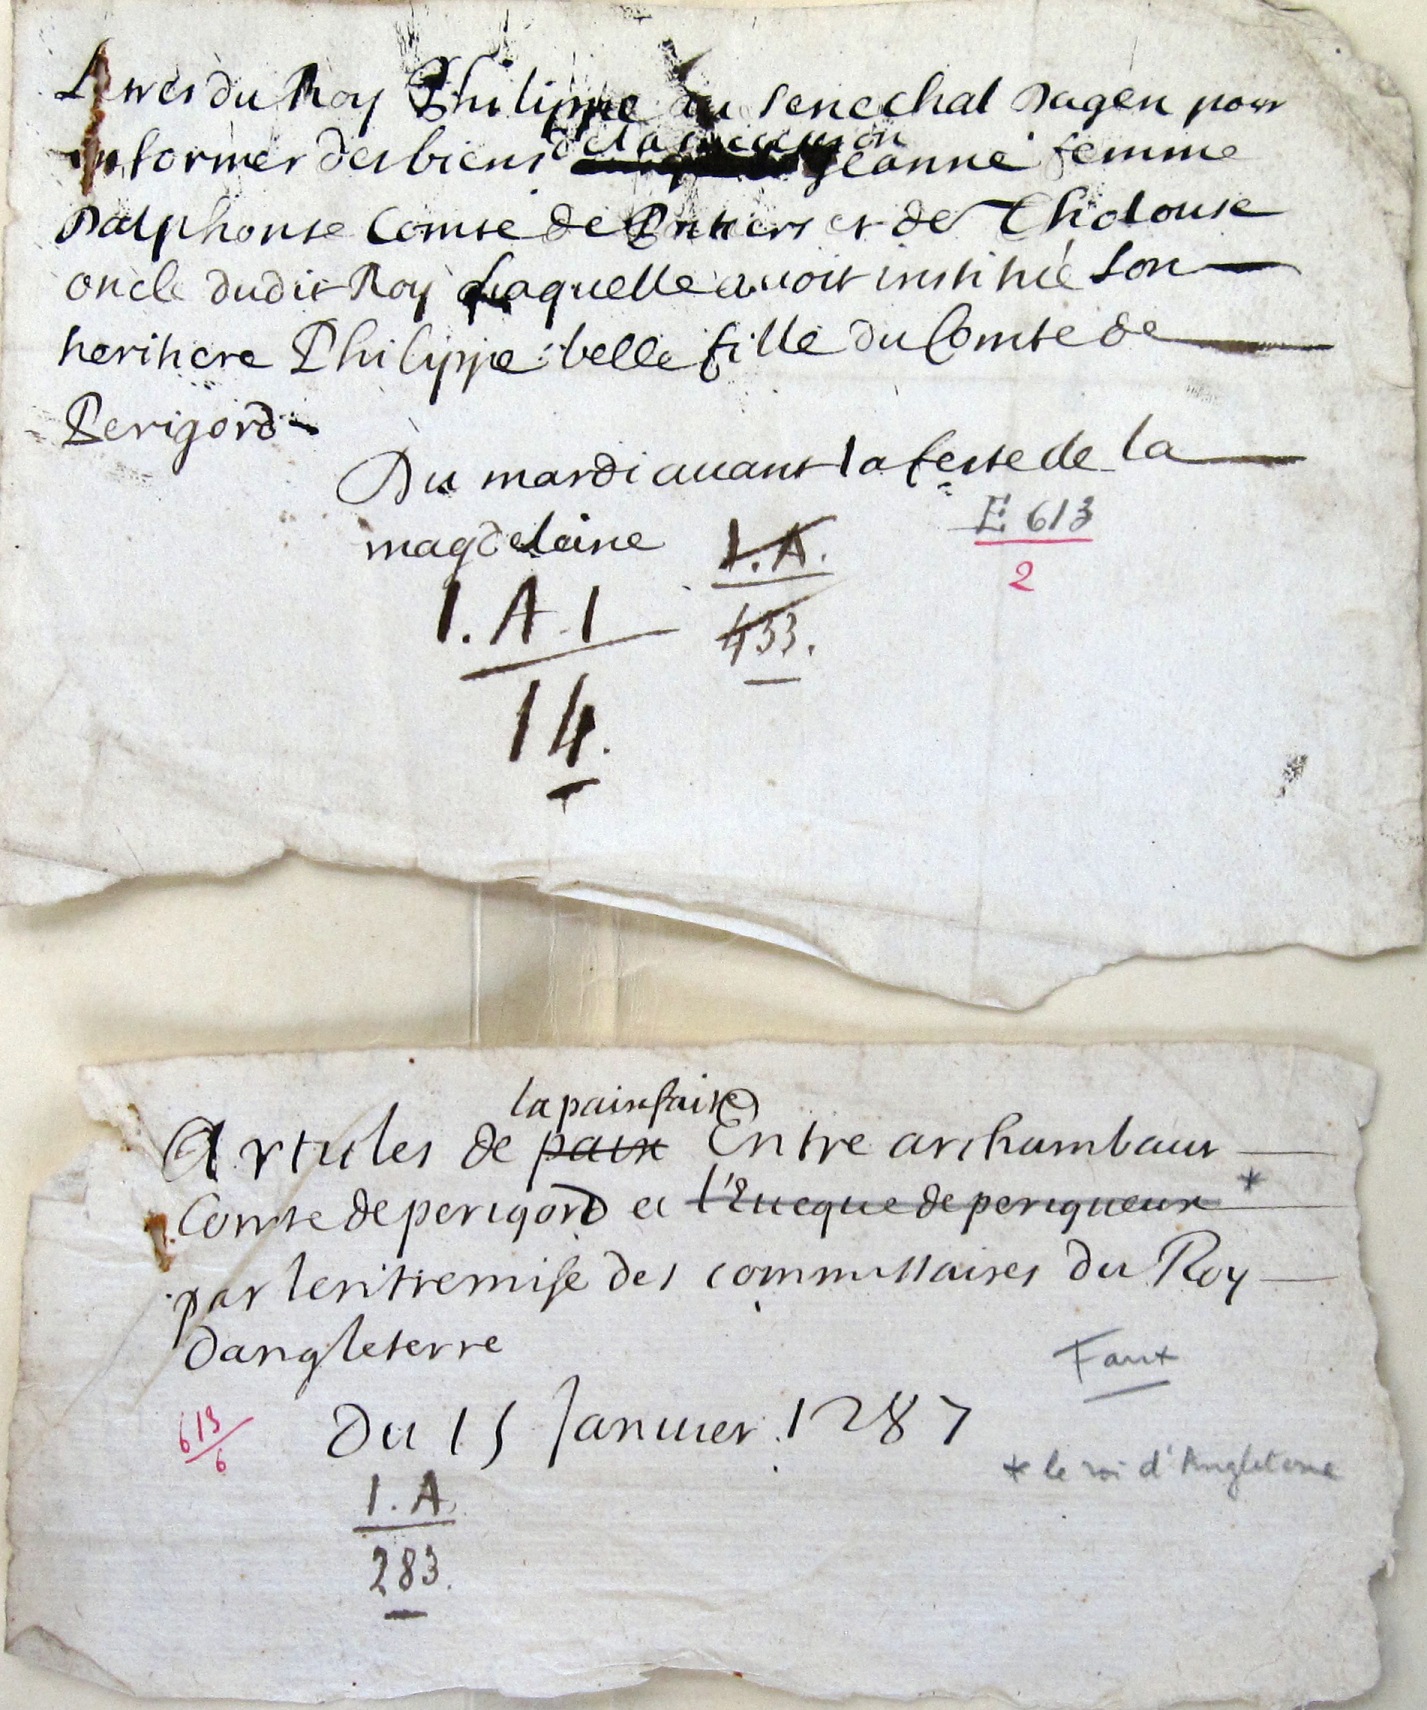 Lettres du Roy Philippe au senechal dagen pour
informer des biens de la succession Jeanne femme
dalphonse Comte de Poitiers et de Tholouse
oncle dudit Roy laquelle avoit institué son
heritiere Philippe belle fille du Comte de
Perigord
Du mardi avant la feste de la
magdelaine
I.A.
433.
E 613
2
I.A.1
14.
la paix faite
Articles de paix Entre archambaut
Comte de perigord et l'Eveque de perigueux *
par lentremise des commissaires du Roy
dangleterre
Faux
613
6
Du 15 Janvier 1287
* le roi d'Angleterre
I.A.
283.